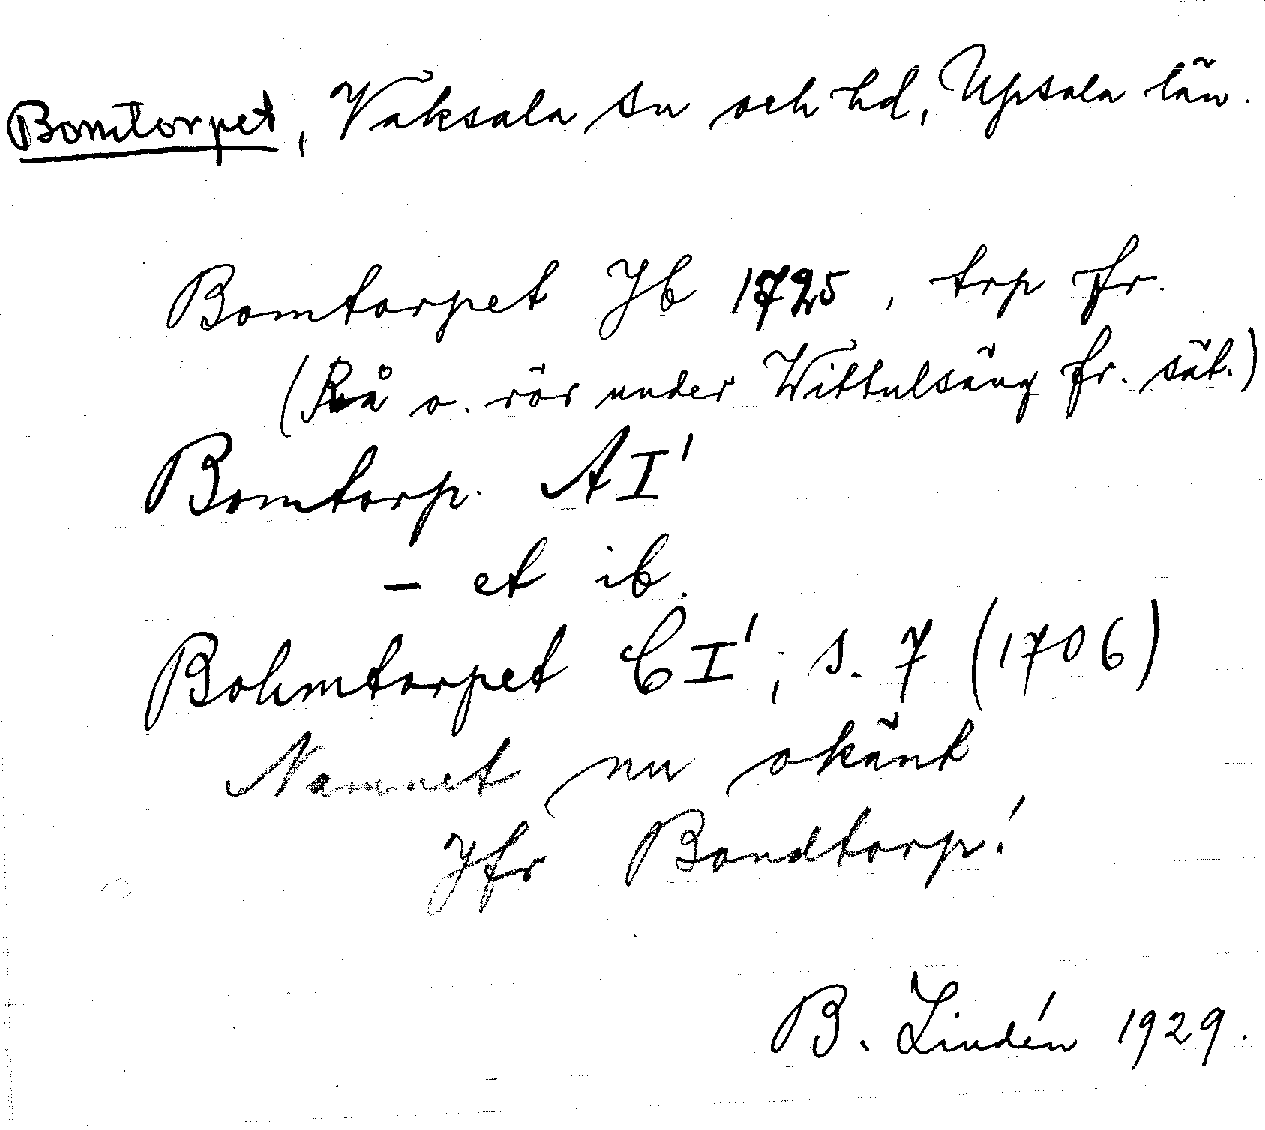 Bomtorpet, Vaksala sn och hd, Upsala län.
Bomtorpet Jb 1725, trp fr.
(Rå o. rör under Wittulsäng fr. sät.)
Bomtorp. AI'
– et ib.
Bohmtorpet CI', s. 7 (1706)
Namnet nu okänt
Jfr Bondtorp!
B. Lindén 1929.